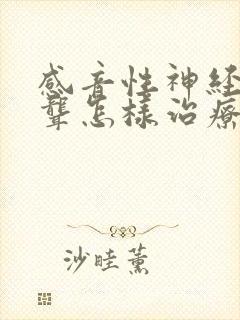 感音性神经
聋怎樣治療
沙畦薰